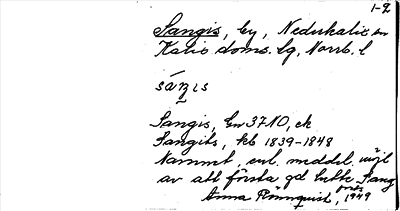 1-2
Sangis, by, Nederkalix sn
Kalix doms. lg, Norrb. l
sáŋis
Sangis, Gn 37NO, ek
Sangits, kb 1839-1848
Namnet, enl. meddel. möjl.
av att första gd hette Sang
Anna Rönnquist, 1949